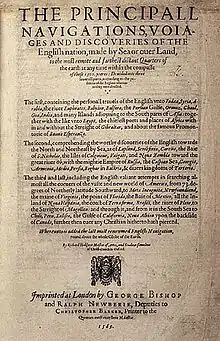 THE PRINCIPALL
NAVIGATIONS, VOIA-
GES AND DISCOVERIES OF THE
English nation, made by Sea or ouer Land,
to the most remote and farthest distant Quarters of
the earth at any time within the compasse
of these 1500. yeeres: Deuided into three
The first, conteining the personall trauels of the English vnto Iudæa, Syria, A-
rabia, the riuer Euphrates, Babylon, Balsara, the Persian Gulfe, Ormuz, Chaul,
Goa, India, and many Islands adioyning to the South parts of Asia: toge-
ther with the like vnto Egypt, the chiefest ports and places of Africa with-
in and without the Streight of Gibraltar, and about the famous Promon-
torie of Buona Esperanza.
The second, comprehending the worthy discoueries of the English towards
the North and Northeast by Sea, as of Lapland,
S. Nicholas, the Isles of Colgoieue, Vaigats, and Noua Zembla toward the
great riuer Ob, with the mightie Empire of Russia, the Caspian Sea, Georgia,
Armenia, Media, Persia, Boghar in Bactria,
The third and last, including the English valiant attempts in searching al-
most all the corners of the vaste and new world of America, from 73. de-
grees of Northerly latitude Southward, to
the maine of Virginia, the point of Florida, the Baie of Mexico, all the In-
land of Noua Hispania, the coast of Terra firma, Brasill, the riuer of Plate, to
the Streight of Magellan: and through it, and from it in the South Sea to
Chili, Peru, Xalisco, the Gulfe of California, Noua Albion vpon the backside
of Canada, further then euer any Christian hitherto hath pierced.
Whereunto is added the last most renowmed English Nauigation,
round about the whole Globe of the Earth.
By Richard Hakluyt Master of Artes, and Student sometime
of Christ-church in Oxford.
Imprinted at London by GEORGE BISHOP
and RALPH NEWBERIE, Deputies to
CHRISTOPHER BARKER, Printer to the
Queenes most excellent Maiestie.
1589.